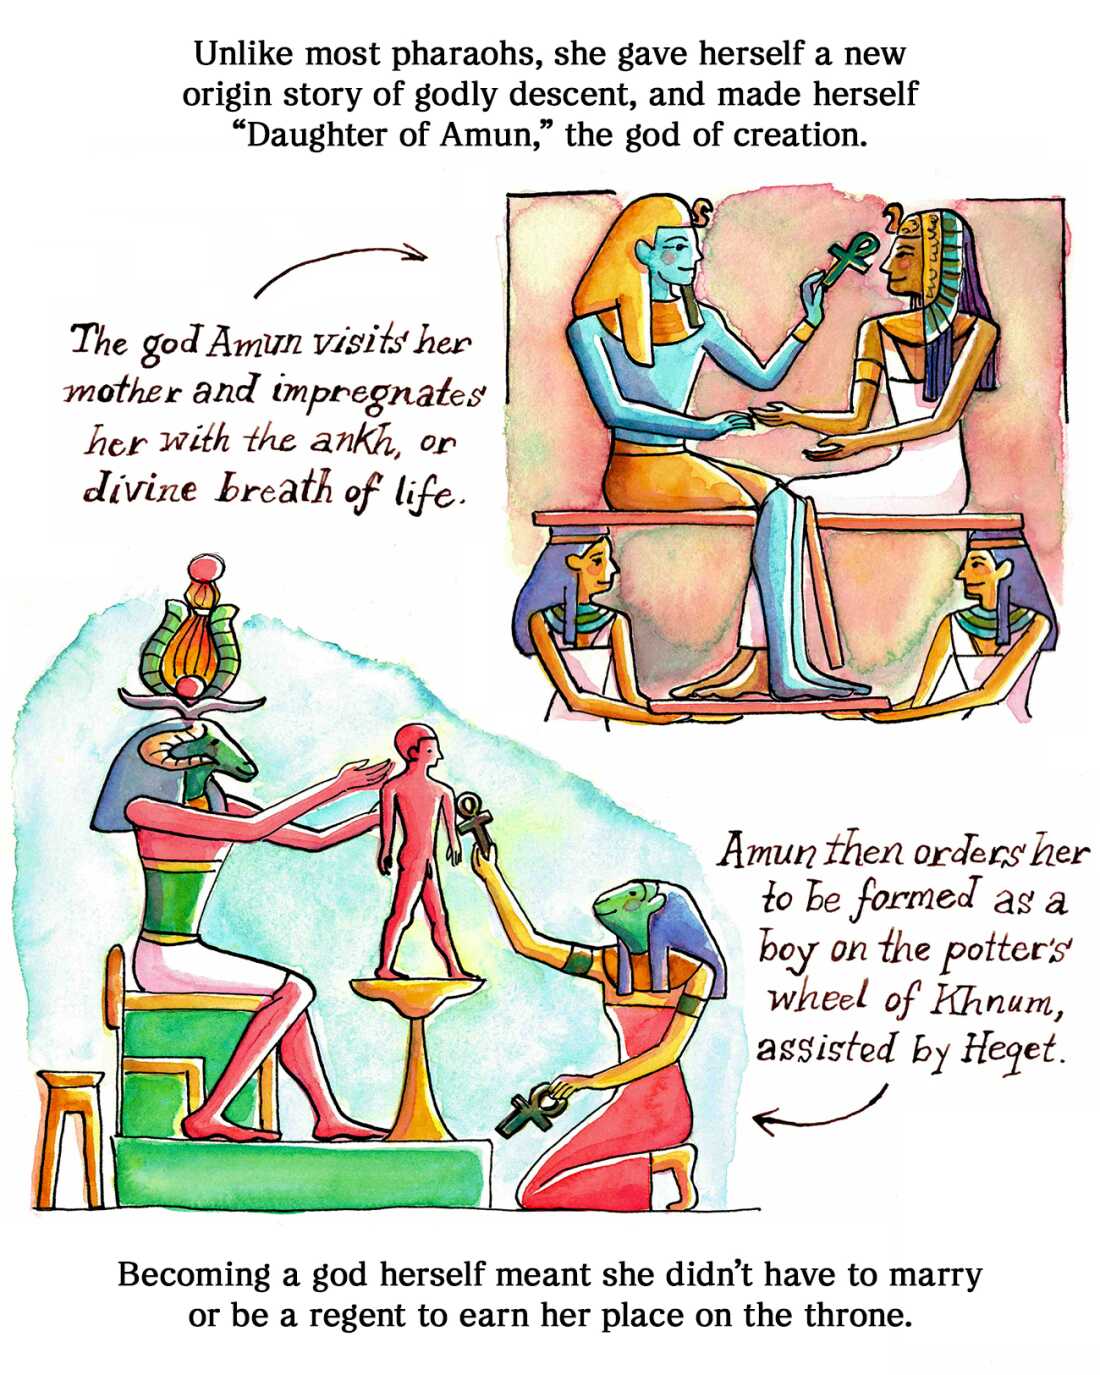 Unlike most pharaohs, she gave herself a new
origin story of godly descent, and made herself
“Daughter of Amun,” the god of creation.
The god Amun visits her
mother and impregnates
her with the ankh, or
divine breath of life.
Amun then orders her
to be formed as a
boy on the potter's
wheel of Khnum,
assisted by Heqet.
Becoming a god herself meant she didn’t have to marry
or be a regent to earn her place on the throne.